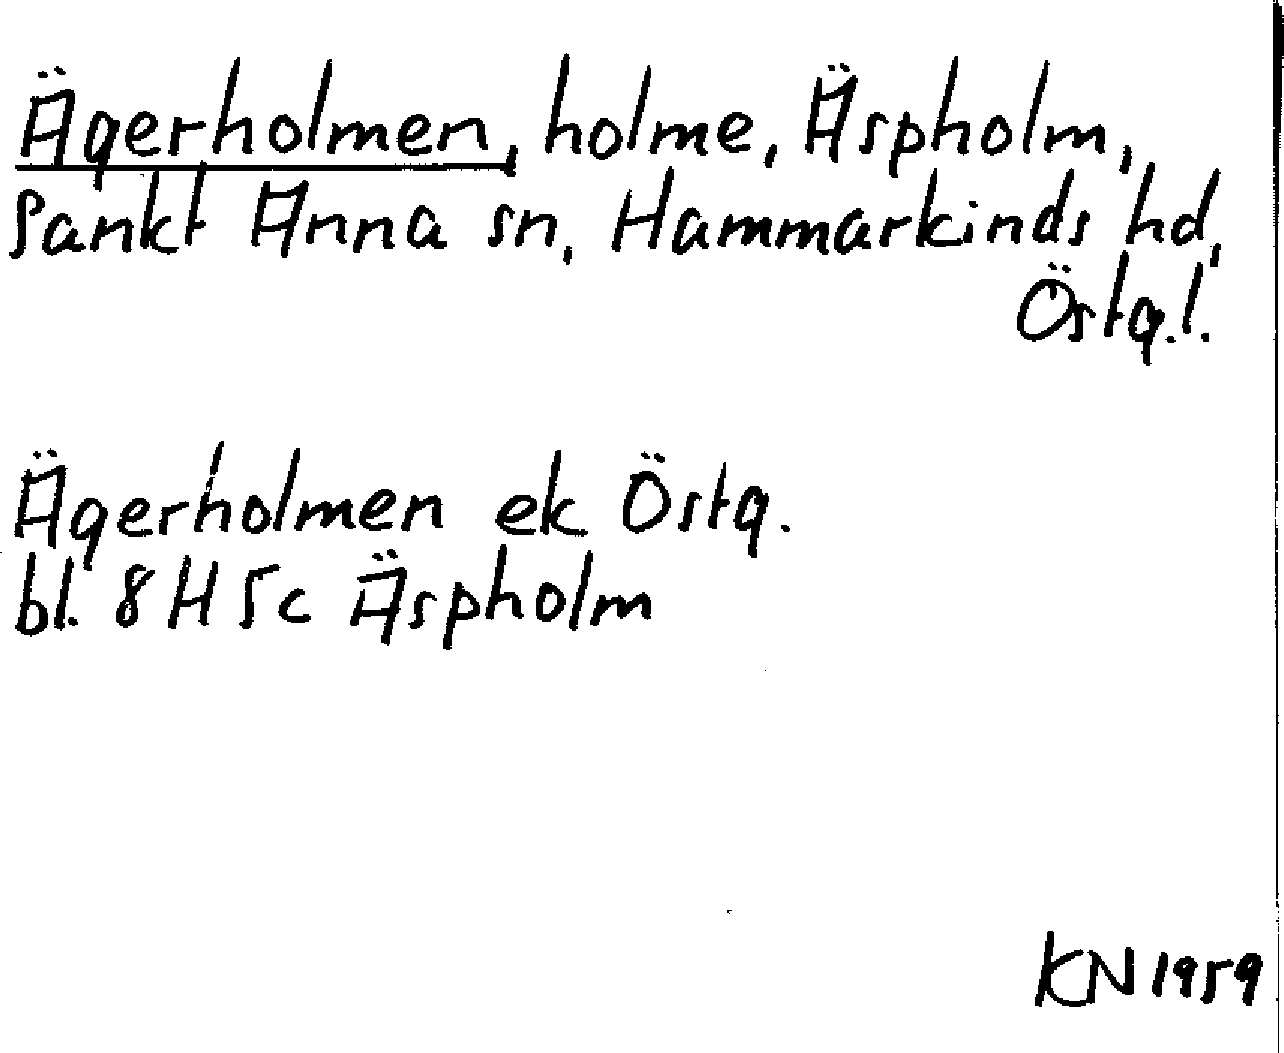 Ägerholmen, holme, Äspholm,
Sankt Anna sn, Hammarkinds hd,
Östg.l.
Ägerholmen ek Östg.
bl. 8H5c Äspholm
KN 1959